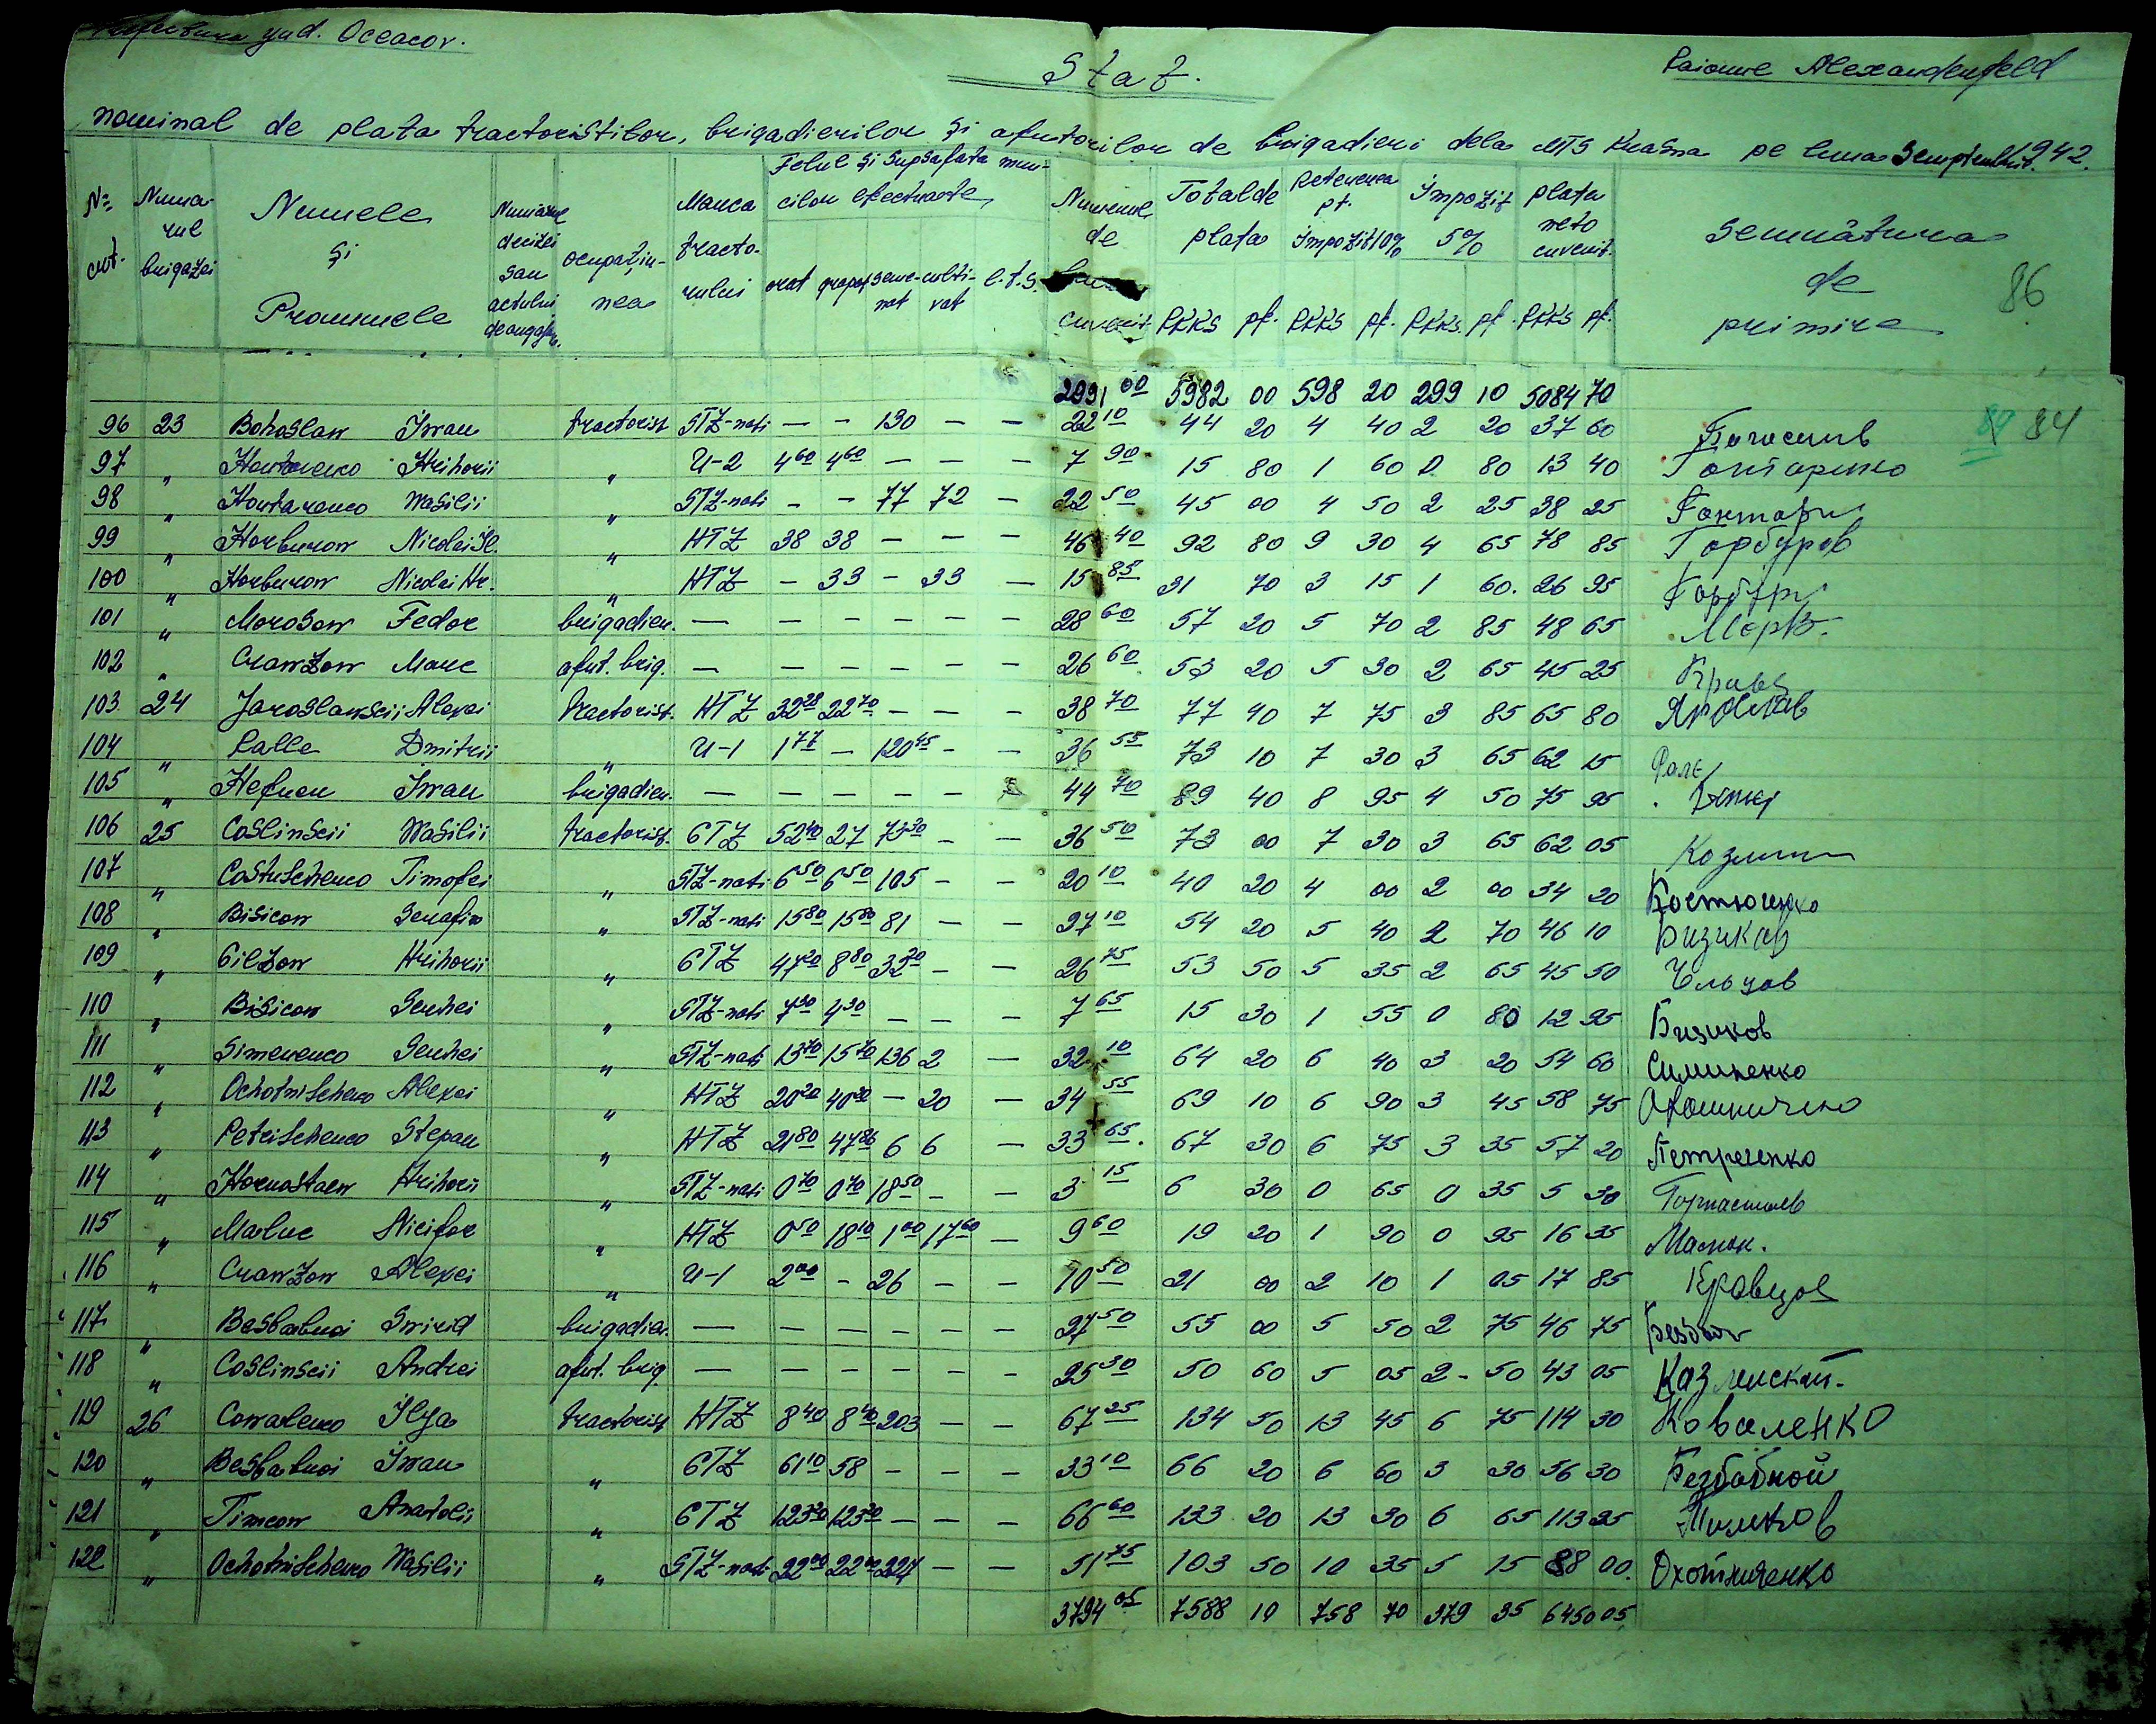 Prefectura jud. Oceacov.
Raionul Alexandenfeld
Stat.
nominal de plata tractoristilor, brigadierilor și ajutorilor de brigadieri dela MTS Krasna pe luna Septembrie 1942.
№ crt. Numarul brigazei Numele și Pronumele Numărul deciziei sau actului de angajare ocupațiunea Marca tractorului Felul și supsafata muncilor efectuate arat grapat semenat cultivat l.t.s. Numerele de cuvenit. Total de plata RKKS pf. Retenerea pt. Impozit 10% RKKS pf. Impozit 5% RKKS. pf. plata neto cuvenit. RKKS pf. semnătura de primire
86
2991 00 5982 00 598 20 299 10 5084 70
96 23 Bohoslaw Iwan tractorist STZ-nati — — 130 — — 22 10 44 20 4 40 2 20 37 60 84
97 " Hontarenco Hrihorii " U-2 4 60 4 60 — — — 7 90 15 80 1 60 0 80 13 40 Гонтаренко
98 " Hontarenco Wasilii " STZ-nati - - 77 72 — 22 50 45 00 4 50 2 25 38 25 Гонтарь
99 " Horburow Nicolai Il. " HTZ 38 38 — — — 46 40 92 80 9 30 4 65 78 85 Горбуров
100 " Horburow Nicolai Hr. " HTZ — 33 — 33 — 15 85 31 70 3 15 1 60. 26 95
101 " Morosow Fedor brigadier. — — — — — — 28 60 57 20 5 70 2 85 48 65
102 " Crawzow Marc ajut. brig. — — — — — — 26 60 53 20 5 30 2 65 45 25 Кравц
103 24 Jaroslawscii Alexei tractorist. HTZ 32 28 22 70 — — — 38 70 77 40 7 75 3 85 65 80
104 " Ralle Dmitrii " U-1 1 77 — 120 45 - — 36 55 73 10 7 30 3 65 62 15
105 " Hefner Iwan brigadier. — — — — — — 44 70 89 40 8 95 4 50 75 95
106 25 Coslinscii Wasilii tractorist. CTZ 52 40 27 73 30 - — 36 50 73 00 7 30 3 65 62 05
107 " Costuschenco Timofei " STZ-nati 6 50 6 50 105 - — 20 10 40 20 4 00 2 00 34 20 Костюченко
108 " Bisicow Serafim " STZ-nati 15 80 15 80 81 — — 27 10 54 20 5 40 2 70 46 10 Бизиков
109 " Cilzow Hrihorii " CTZ 47 20 8 80 32 20 - — 26 75 53 50 5 35 2 65 45 50 Чельцов
110 " Bisicow Serhei " STZ-nati 7 30 4 30 — — — 7 65 15 30 1 55 0 80 12 95 Бизиков
111 " Simenenco Serhei " STZ-nati 13 70 15 70 136 2 — 32 10 64 20 6 40 3 20 54 60 Симиненко
112 " Ochotnischenco Alexei " HTZ 20 20 40 20 — 20 — 34 55 69 10 6 90 3 45 58 75
113 " Petrischenco Stepan " HTZ 21 80 47 86 6 6 — 33 65. 67 30 6 75 3 35 57 20 Петреченко
114 " Hornostaew Hrihorii " STZ-nati 0 70 0 70 18 50 - — 3 15 6 30 0 65 0 35 5 30
115 " Maluc Nicifor " HTZ 0 50 18 10 1 00 17 60 — 9 60 19 20 1 90 0 95 16 35
116 " Crawzow Alexei " U-1 2 00 - 26 — — 10 50 21 00 2 10 1 05 17 85 Кравцов
117 " Besbabnoi Swirid brigadier. — — — — — — 27 50 55 00 5 50 2 75 46 75
118 " Coslinscii Andrei ajut. brig — — — — — — 25 30 50 60 5 05 2 - 50 43 05 Казлинский.
119 26 Cowalenco Ilya tractorist HTZ 8 40 8 40 203 — — 67 25 134 50 13 45 6 75 114 30 Коваленко
120 " Besbabnoi Iwan " CTZ 61 10 58 — — — 33 10 66 20 6 60 3 30 56 30 Безбабной
121 " Timcow Anatolii " CTZ 123 20 123 20 — — — 66 60 133 20 13 30 6 65 113 25 Тимков
122 " Ochotnischenco Wasilii " STZ-nati 22 00 22 00 224 — — 51 75 103 50 10 35 5 15 88 00. Охотниченко
3794 05 7588 10 758 70 379 35 6450 05